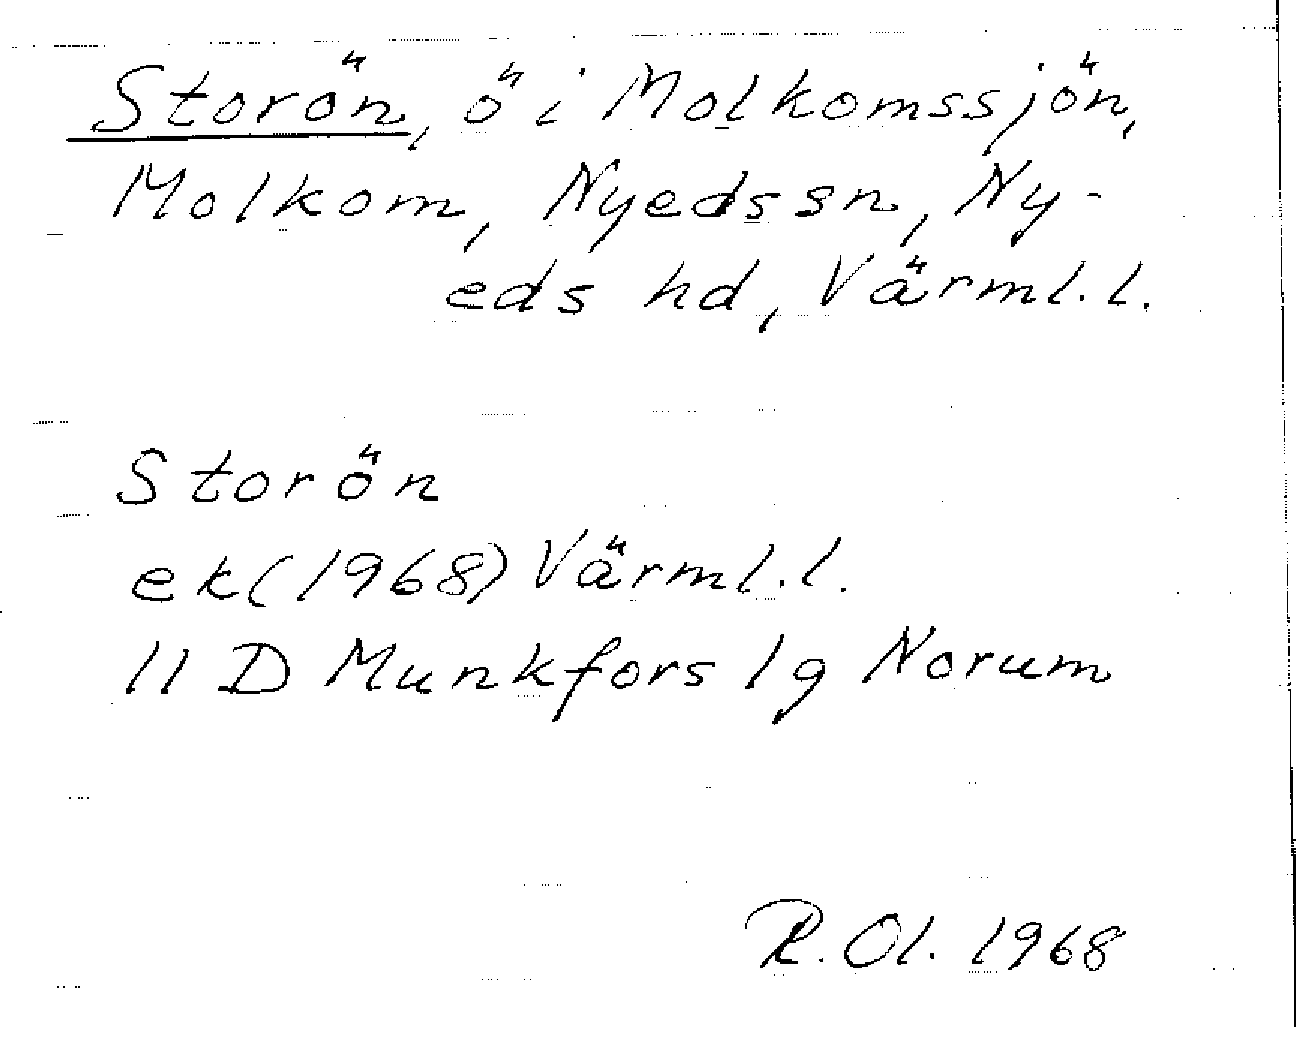 Storön, ö i Molkomssjön,
Molkom, Nyedssn, Ny-
eds hd, Värml. l.
Storön
ek (1968) Värml. l.
11 D Munkfors 1g Norum
R. Ol. 1968